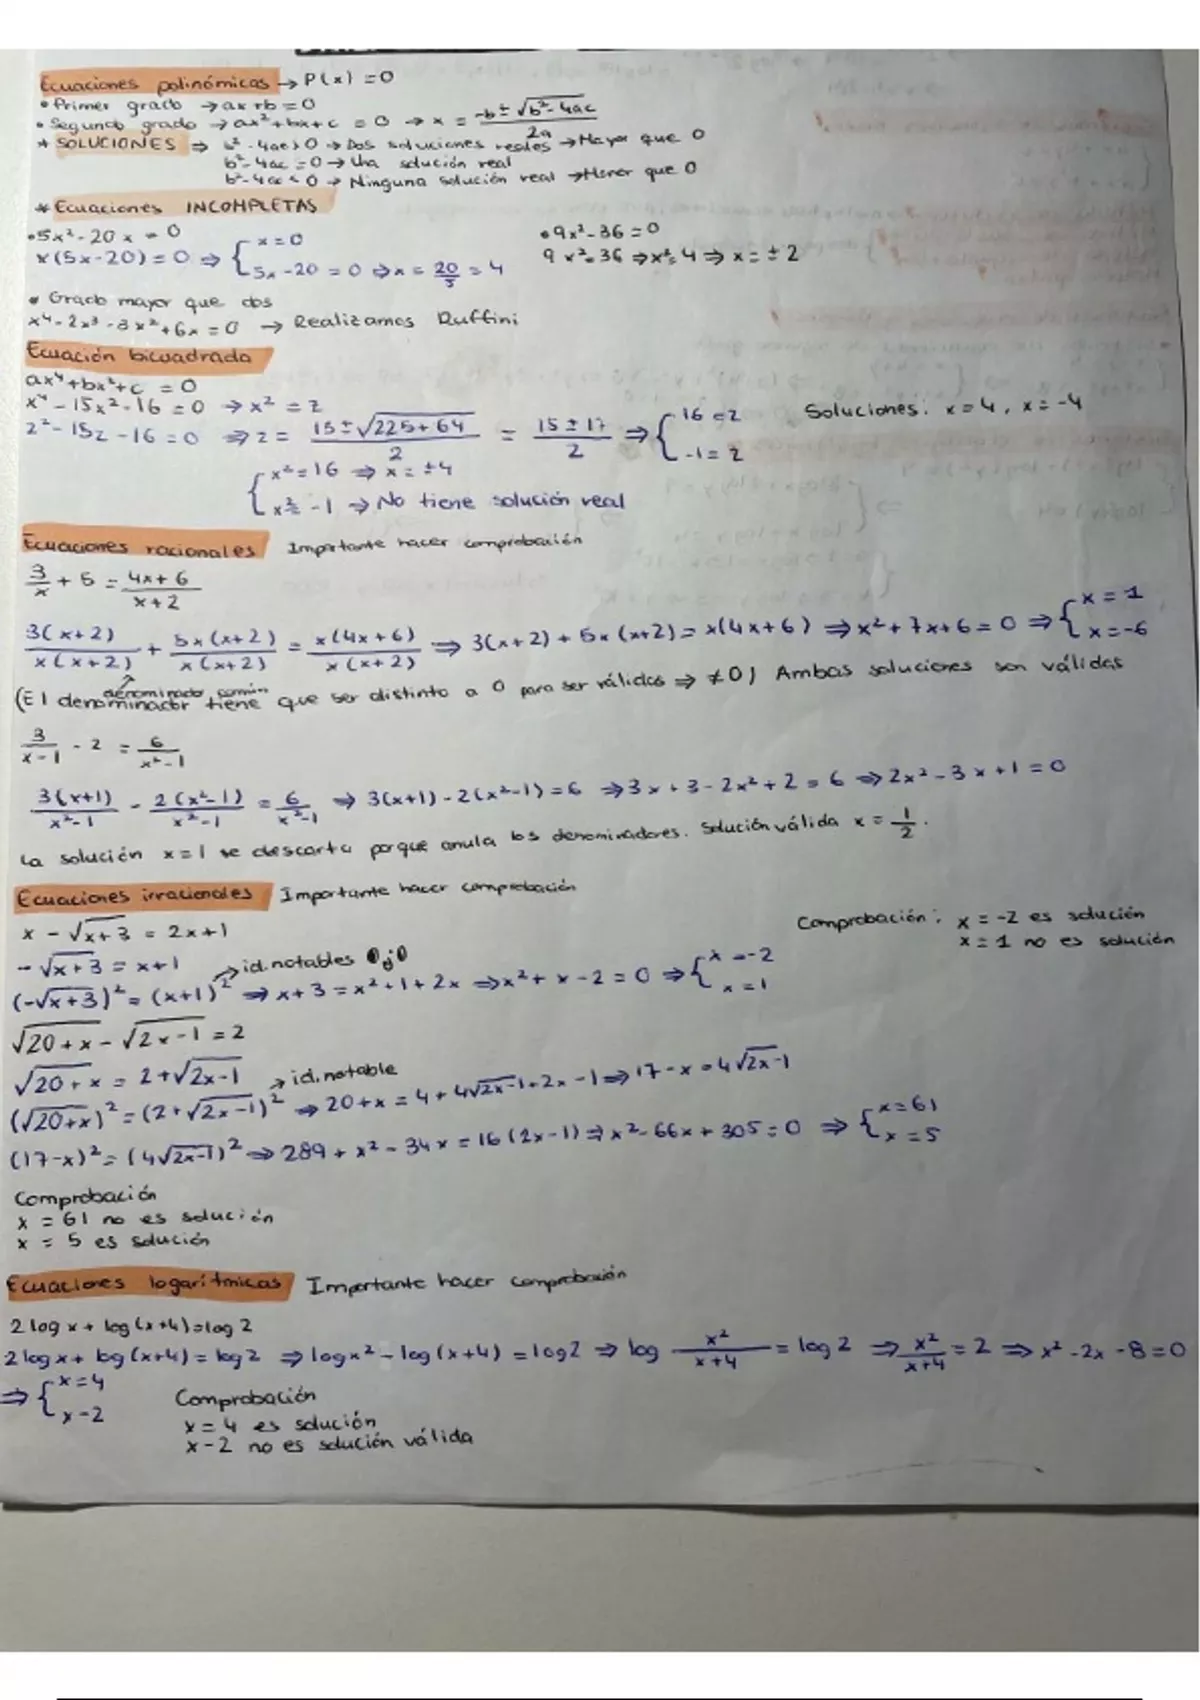 Ecuaciones polinómicas → P(x) = 0
• Primer grado → ax+b = 0
• Segundo grado → ax²+bx+c = 0 → x = (-b ± √(b²-4ac))/2a
* SOLUCIONES ⇒ b²-4ac>0 → Dos soluciones reales → Mayor que 0
b²-4ac = 0 → Una solución real
b²-4ac < 0 → Ninguna solución real → Menor que 0
* Ecuaciones INCOMPLETAS
• 5x²-20x = 0
x(5x-20) = 0 ⇒ { x = 0
5x-20 = 0 ⇒ x = 20/5 = 4
• 9x²-36 = 0
9x²=36 ⇒ x²=4 ⇒ x = ±2
• Grado mayor que dos
x⁴-2x³-3x²+6x = 0 → Realizamos Ruffini
Ecuación bicuadrada
ax⁴+bx²+c = 0
x⁴-15x²-16 = 0 → x² = z
z²-15z-16 = 0 ⇒ z = (15 ± √(225+64))/2 = (15 ± 17)/2 ⇒ { 16 = z
-1 = z
Soluciones: x = 4, x = -4
{ x² = 16 ⇒ x = ±4
x² = -1 ⇒ No tiene solución real
Ecuaciones racionales Importante hacer comprobación
3/x + 5 = (4x+6)/(x+2)
3(x+2)/x(x+2) + 5x(x+2)/x(x+2) = x(4x+6)/x(x+2) ⇒ 3(x+2) + 5x(x+2) = x(4x+6) ⇒ x²+7x+6 = 0 ⇒ { x = 1
x = -6
denominador común
(El denominador tiene que ser distinto a 0 para ser válidas ⇒ ≠0) Ambas soluciones son válidas
3/(x-1) - 2 = 6/(x²-1)
3(x+1)/(x²-1) - 2(x²-1)/(x²-1) = 6/(x²-1) ⇒ 3(x+1)-2(x²-1) = 6 ⇒ 3x+3-2x²+2 = 6 ⇒ 2x²-3x+1 = 0
La solución x=1 se descarta porque anula los denominadores. Solución válida x = 1/2.
Ecuaciones irracionales Importante hacer comprobación
x - √(x+3) = 2x+1
-√(x+3) = x+1 → id. notables
(-√(x+3))² = (x+1)² ⇒ x+3 = x²+1+2x ⇒ x²+x-2 = 0 ⇒ { x = -2
x = 1
Comprobación: x = -2 es solución
x = 1 no es solución
√(20+x) - √(2x-1) = 2
√(20+x) = 2+√(2x-1) → id. notable
(√(20+x))² = (2+√(2x-1))² ⇒ 20+x = 4+4√(2x-1)+2x-1 ⇒ 17-x = 4√(2x-1)
(17-x)² = (4√(2x-1))² ⇒ 289+x²-34x = 16(2x-1) ⇒ x²-66x+305 = 0 ⇒ { x = 61
x = 5
Comprobación
x = 61 no es solución
x = 5 es solución
Ecuaciones logarítmicas Importante hacer comprobación
2 log x + log(x+4) = log 2
2 log x + log(x+4) = log 2 ⇒ log x² - log(x+4) = log 2 ⇒ log x²/(x+4) = log 2 ⇒ x²/(x+4) = 2 ⇒ x²-2x-8 = 0
⇒ { x = 4
x - 2
Comprobación
x = 4 es solución
x - 2 no es solución válida